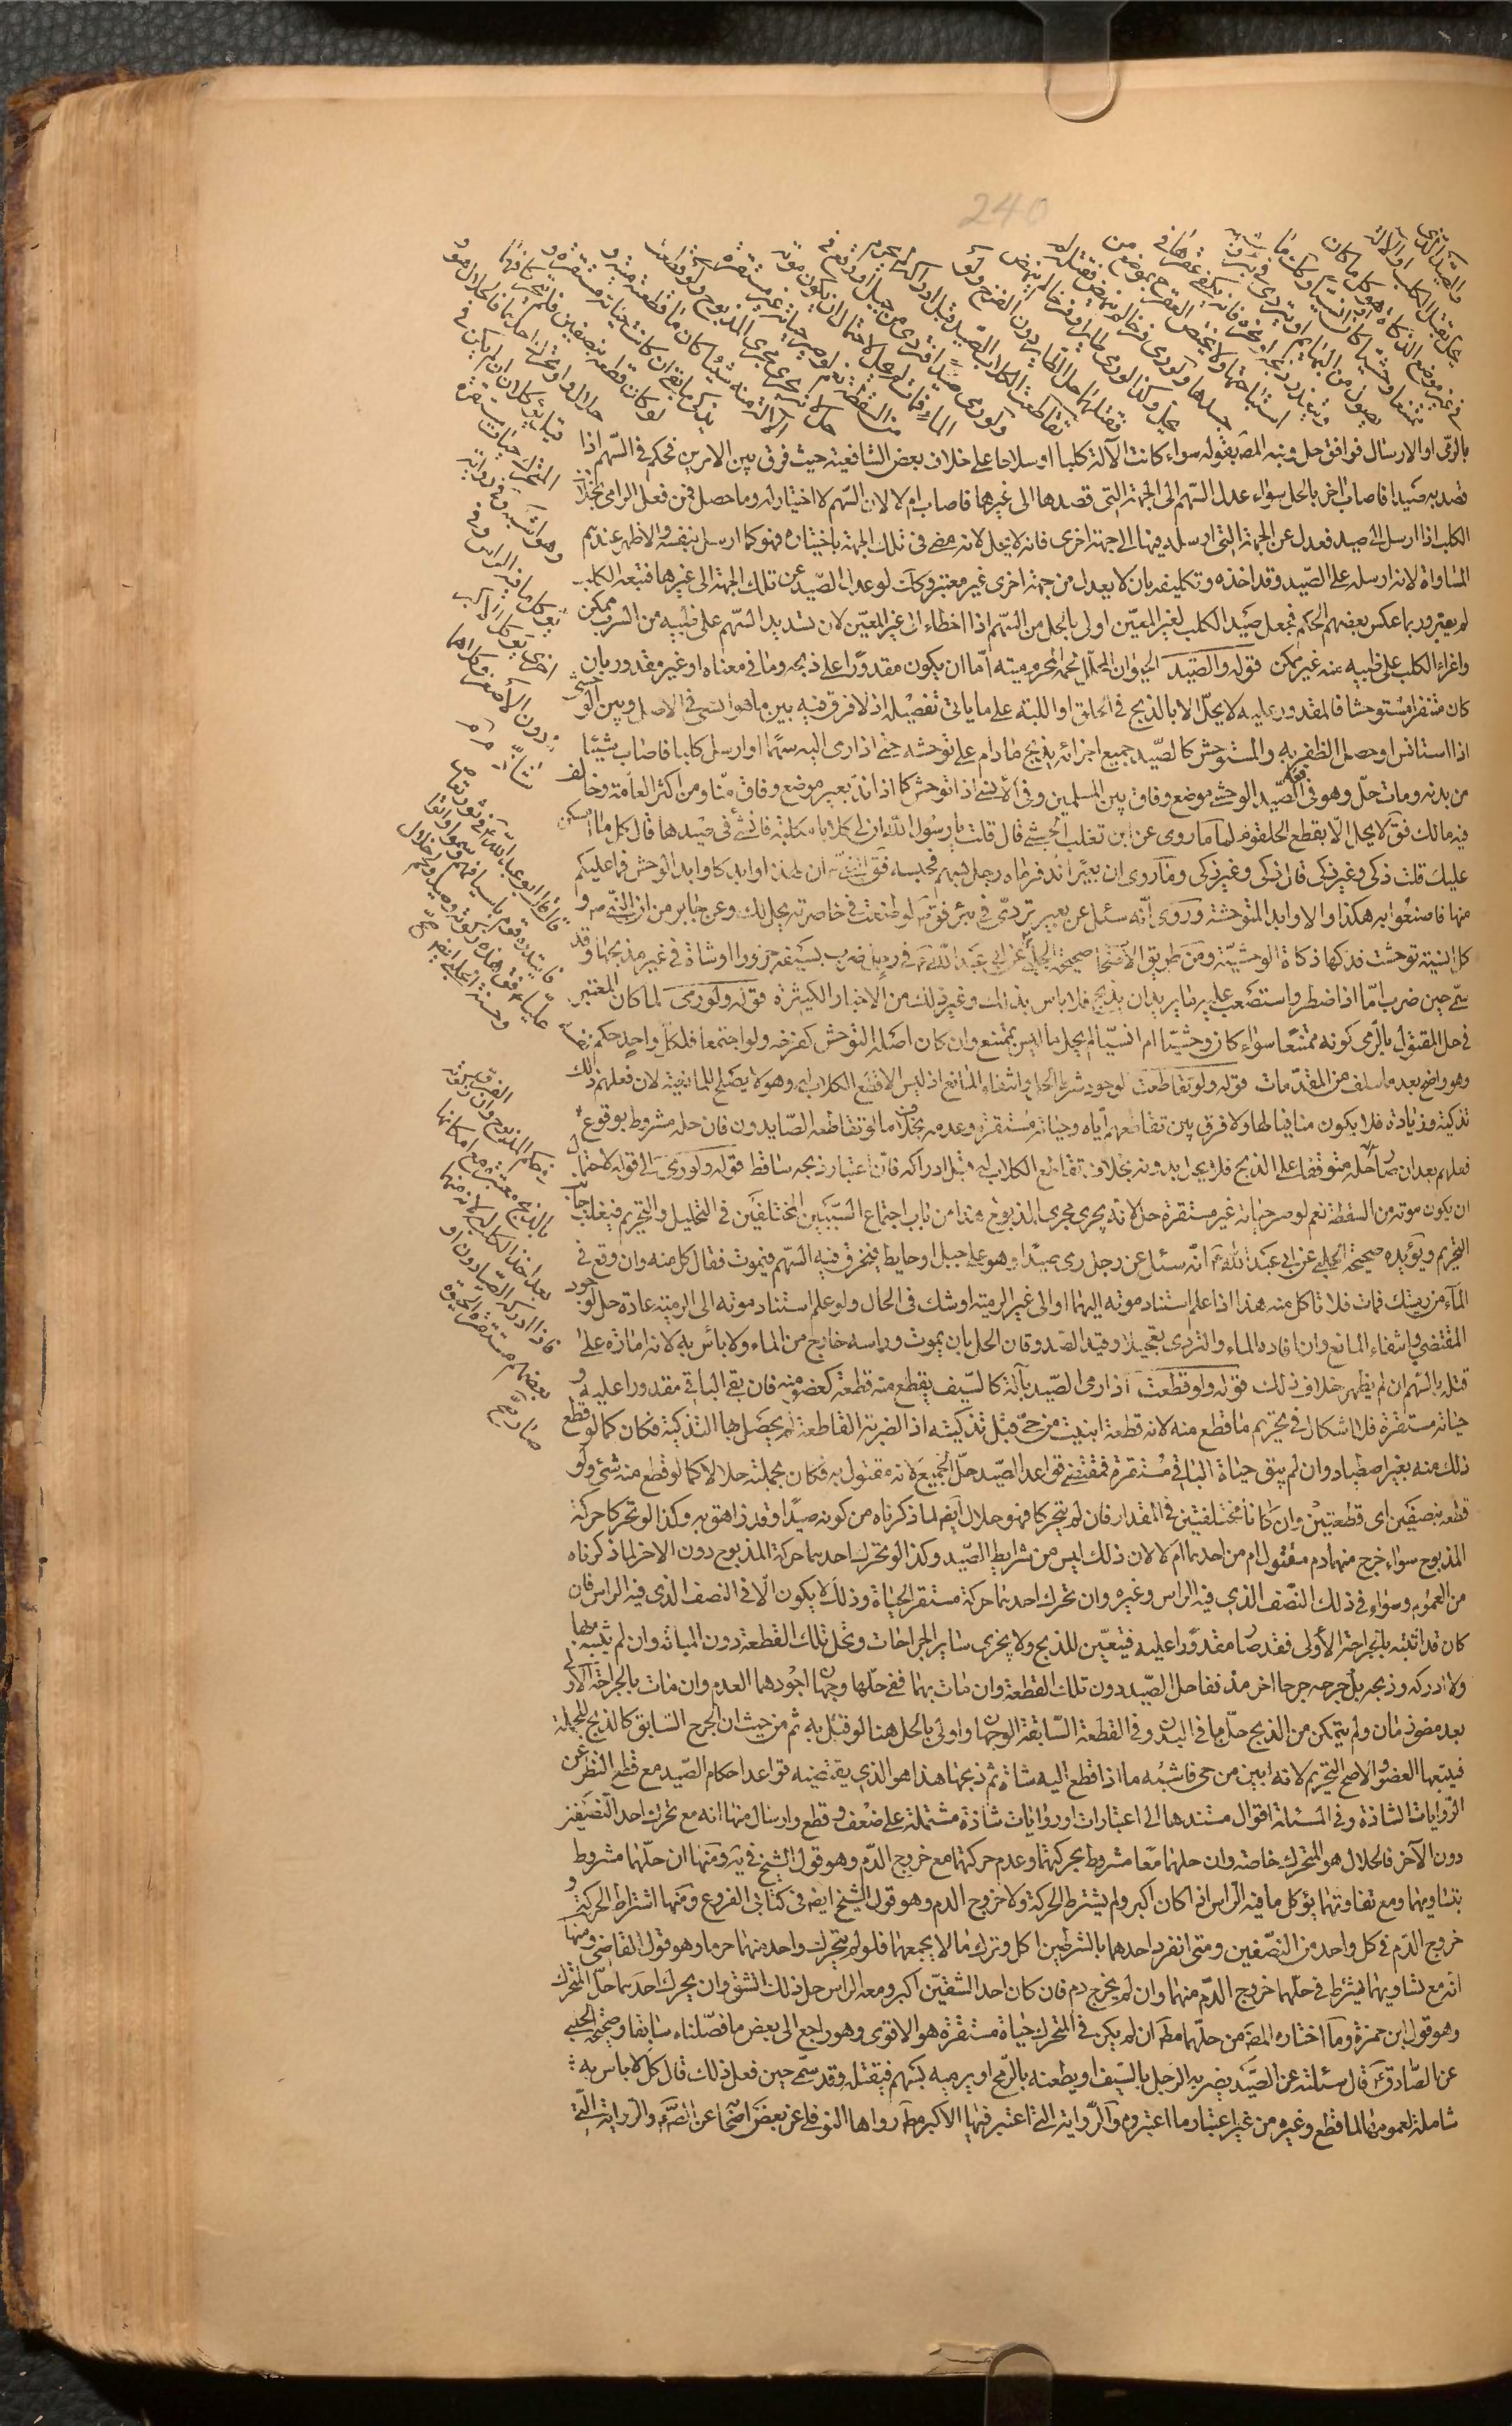 240
والصيد الذى
يحل بقتل الكلب او الآلة
فى غير موضع الذكاة هو كل ما كان
ممتنعا وحشيا كان او انسيا وكذا ما
يصول من البهائم او يتردى فى بئر وشبهه
ويتعذر ذبحه او نحره فانه يكفى عقرها فى
استباحتها ولا يختص العقر بموضع من
جسدها ولو رمى فرخا لم ينهض فقتله لم
يحل وكذا لو رمى طايرا وفرخا لم ينهض
فقتلهما حل الطاير دون الفرخ ولو
تقاطعت الكلاب الصيد قبل ادراكه لم يحرم
ولو رمى صيدا فتردى من جبل او وقع فى
الماء فمات لم يحل لاحتمال ان يكون موته
من السقطة نعم لو صير حياته غير مستقرة
حل لانه يجرى مجرى المذبوح ولو قطعت
الآلة منه شيئا كان ما قطعته ميتة و
يذكى ما بقى ان كانت حياته مستقرة و
لو كان قطعه بنصفين فلم يتحركا فهما
حلال ولو تحرك احدهما فالحلال هو
بالرمى او الارسال فوافق حل ونبه المص بقوله سواء كانت الآلة كلبا او سلاحا على خلاف بعض الشافعية حيث فرق بين الامرين فحكم فى السهم اذا
قصد به صيدا فاصاب اخر بالحل سواء عدل السهم الى الجهة التى قصدها الى غيرها فاصاب ام لا لان السهم لا اختيار له وما حصل فمن فعل الرامى بخلاف
الكلب اذا ارسل الى صيد فعدل عن الجهة التى ارسل فيها الى جهة اخرى فانه لا يحل لانه مضى فى تلك الجهة باختياره فهو كما ارسل بنفسه والاظهر عندهم
المساواة لانه ارسله على الصيد وقد اخذه وتكليفه بان لا يعدل من جهة اخرى غير معتبر وكذا لو عدل الصيد عن تلك الجهة الى غيرها فتبعه الكلب
لم يعتبر وربما عكس بعضهم الحكم فجعل صيد الكلب لغير المعين اولى بالحل من السهم اذا اخطاء الى غير المعين لان تسديد السهم على ظبيه من السرب ممكن
واغراء الكلب على ظبيه منه غير ممكن قوله والصيد الحيوان المحلل لحمه المحرم ميتته اما ان يكون مقدورا على ذبحه وما فى معناه او غير مقدور بان
كان متنفرا مستوحشا فالمقدور عليه لا يحل الا بالذبح فى الحلق او اللبة على ما ياتى تفصيله اذ لا فرق فيه بين ما هو انسى فى الاصل وبين الوحشى
اذا استانس او حصل الظفر به والمستوحش كالصيد جميع اجزائه يذبح ما دام على توحشه حتى اذا رمى اليه سهما او ارسل كلبا فاصاب شيئا
من بدنه ومات حل وهو فى الصيد الوحشى موضع وفاق بين المسلمين وفى الانسى اذا توحش كما اذا ند بعير موضع وفاق منا ومن اكثر العامة وخالف
فيه مالك فق لا يحل الا بقطع الحلقوم لنا ما روى عن ابى ثعلب الخشنى قال قلت يا رسول الله ان لى كلابا مكلبة فافتنى فى صيدها قال كل ما امسكن
عليك قلت ذكى وغير ذكى قال ذكى وغير ذكى وما روى ان بعيرا ند فرماه رجل بسهم فحبسه فق النبى ان لهذه اوابد كاوابد الوحش فما غلبكم
منها فاصنعوا به هكذا والاوابد المتوحشة وروى انه سئل عن بعير تردى فى بئر فق لو طعنت فى خاصرته يحل لك وعن جابر ان النبى قال
كل انسية توحشت فذكها ذكاة الوحشية ومن طريق الاصحاب صحيحة الحلبى عن ابى عبد الله فى رجل ضرب بسيفه جزورا او شاة فى غير مذبحها وقد
سمى حين ضرب اما اذا اضطر واستصعب عليه ما يريد ان يذبح فلا باس بذلك وغير ذلك من الاخبار الكثيرة قوله ولو رمى لما كان المعتبر
فى حل المقتول بالرمى كونه ممتنعا سواء كان وحشيا ام انسيا لم يحل ما ليس بممتنع وان كان اصله التوحش كفرخه ولو اجتمعا فلكل واحد حكم نفسه
وهو واضح بعد ما سلف من المقدمات قوله ولو تقاطعت لوجود شرط الحل وانتفاء المانع اذ ليس الا قطع الكلاب له وهو لا يصلح للمانعية لان فعلهم ذلك
تذكية وزيادة فلا يكون منافيا لها ولا فرق بين تقاطعهم اياه وحياته مستقرة وعدمه بخلاف ما لو تقاطعه الصايدون فان حله مشروط بوقوع
فعلهم بعد ان صار حله متوقفا على الذبح فلا يحل بدونه بخلاف تقاطع الكلاب له قبل ادراكه فان اعتبار ذبحه ساقط قوله ولو رمى الى قوله لاحتمال
ان يكون موته من السقطة نعم لو صير حياته غير مستقرة حل لانه يجرى مجرى المذبوح هذا من باب اجتماع السببين المختلفين فى التحليل والتحريم فيغلب جانب
التحريم ويؤيده صحيحة الحلبى عن ابى عبد الله انه سئل عن رجل رمى صيدا وهو على جبل او حايط فيخرق فيه السهم فيموت فقال كل منه وان وقع فى
الماء من رميتك فمات فلا تاكل منه هذا اذا علم استناد موته اليهما او الى غير الرمية او شك فى الحال ولو علم استناد موته الى الرمية عادة حل لوجود
المقتضى وانتفاء المانع وان افاده الماء والتردى تعجيلا وقيد الصدوقان الحل بان يموت وراسه خارج من الماء ولا باس به لانه امارة على
قتله بالسهم ان لم يظهر خلاف ذلك قوله ولو قطعت اذا رمى الصيد بآلة كالسيف يقطع منه قطعة كعضو منه فان بقى الباقى مقدورا عليه و
حياته مستقرة فلا اشكال فى تحريم ما قطع منه لانه قطعة ابينت من حى قبل تذكيته اذ الضربة القاطعة لم يحصل بها التذكية فكان كما لو قطع
ذلك منه بغير اصطياد وان لم يبق حياة الباقى مستقرة فمقتضى قواعد الصيد حل الجميع لانه مقتول به فكان بجملته حلالا كما لو قطع منه شئ ولو
قطعه بنصفين اى قطعتين وان كانا مختلفتين فى المقدار فان لم يتحركا فهو حلال ايض لما ذكرناه من كونه صيدا وقد ازهق به وكذا لو تحركا حركة
المذبوح سواء خرج منهما دم مقتول ام من احدهما ام لا لان ذلك ليس من شرايط الصيد وكذا لو تحرك احدهما حركة المذبوح دون الاخر لما ذكرناه
من العموم وسواء فى ذلك النصف الذى فيه الراس وغيره وان تحرك احدهما حركة مستقر الحياة وذلك لا يكون الا فى النصف الذى فيه الراس فان
كان قد اثبته بالجراحة الاولى فقد صار مقدورا عليه فيتعين للذبح ولا يجزى ساير الجراحات وتحل تلك القطعة دون المبانة وان لم يثبته بها
ولا ادركه وذبحه بل جرحه جرحا اخر مذففا حل الصيد دون تلك القطعة وان مات بهما ففى حلها وجهان اجودهما العدم وان مات بالجراحة الاولى
بعد مضى زمان ولم يتمكن من الذبح حل ما فى البدن وفى القطعة السابقة الوجهان واولى بالحل هنا لو قيل به ثم من حيث ان الجرح السابق كالذبح للجملة
فيتبعها العضو والاصح التحريم لانه ابين من حى فاشبه ما اذا قطع اليه شاة ثم ذبحها هذا هو الذى يقتضيه قواعد احكام الصيد مع قطع النظر عن
الروايات الشاذة وفى المسئلة اقوال مستندها الى اعتبارات او روايات شاذة مشتملة على ضعف وقطع وارسال منها انه مع تحرك احد النصفين
دون الآخر فالحلال هو المتحرك خاصة وان حلهما معا مشروط بحركتهما وعدم حركتهما مع خروج الدم وهو قول الشيخ فى ية ومنها ان حلهما مشروط
بتساويهما ومع تفاوتهما يؤكل ما فيه الراس اذا كان اكبر ولم يشترط الحركة ولا خروج الدم وهو قول الشيخ ايض فى كتابى الفروع ومنها اشتراط الحركة و
خروج الدم فى كل واحد من النصفين ومتى انفرد احدهما بالشرطين اكل وترك ما لا يجمعهما فلو لم يتحرك واحد منهما حرما وهو قول القاضى ومنها
انه مع تساويهما يشترط فى حلهما خروج الدم منهما وان لم يخرج دم فان كان احد الشقين اكبر ومعه الراس حل ذلك الشق وان تحرك احدهما حل المتحرك
وهو قول ابن حمزة وما اختاره المص من حلهما مط ان لم يكن فى المتحرك حياة مستقرة هو الاقوى وهو راجع الى بعض ما فصلناه سابقا وصحيحة الحلبى
عن الصادق قال سئلته عن الصيد يضربه الرجل بالسيف او يطعنه بالرمح او يرميه بسهم فيقتله وقد سمى حين فعل ذلك قال كل لا باس به
شاملة لعمومها لما قطع وغيره من غير اعتبار ما اعتبروه والرواية التى اعتبر فيها الاكبر مط رواها النوفلى عن بعض اصحابنا عن الص والرواية التى